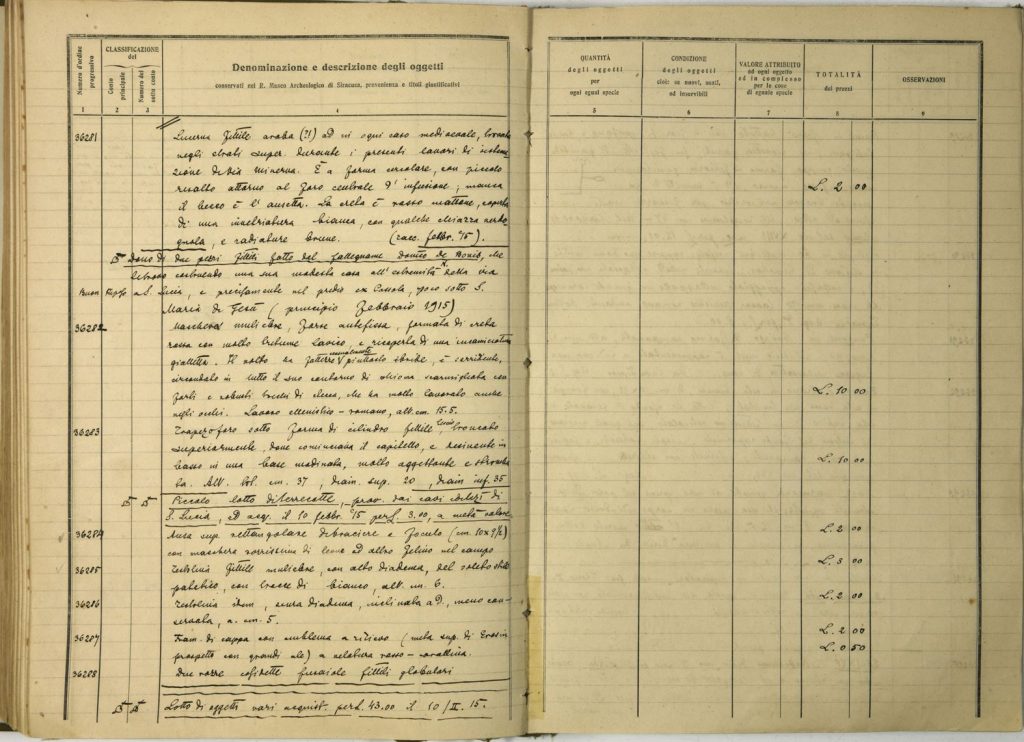 Numero d'ordine progressivo
CLASSIFICAZIONE del
Conto principale
Numero del sotto conto
Denominazione e descrizione degli oggetti
conservati nel R. Museo Archeologico di Siracusa, provenienza e titoli giustificativi
1 2 3 4
36281 Lucerna fittile araba (?!) ad in ogni caso medioevale, trovata
negli strati super. durante i presenti lavori di sistema-
zione di via Minerva. È a forma circolare, con piccolo
risalto attorno al foro centrale d'infusione; manca
il becco e l'ansetta. La creta è rosso mattone, coperta
di una invetriatura bianca, con qualche chiazza verdo-
gnola, e radiature brune. (racc. febbr. 15).
Dono di due pezzi fittili fatto dal falegname Donito de Bonis, che
costruendo una sua modesta casa all'estremità della via
a S. Lucia, e precisamente nel predio ex poco sotto S.
Maria di Gesù (principio Febbraio 1915)
36282 Maschera muliebre, forse antefissa, formata di creta
rossa con molto tritume lavico, e ricoperta di una incamiciatura
gialletta. Il volto ha fattezze piuttosto è sorridente,
circondato in tutto il suo contorno di chioma scarmigliata con
forti e robusti tocchi di stecca, che ha molto lavorato anche
negli occhi. Lavoro ellenistico-romano, alt. cm. 15.5.
36283 Trapezoforo sotto forma di cilindro fittile troncato
superiormente, dove cominciava il capitello, e
basso in una base modinata, molto aggettante e
ta. Alt. tot. cm. 37, diam. sup. 20, diam. inf. 35
Piccolo lotto di terrecotte, prov. dai cavi edilizi di
S. Lucia, ed acq. il 10 febbr. 15 per L. 3.00, a metà valore
36284 Ansa sup. rettangolare di braciere e focolo (cm. 10 x 9½)
con maschera di leone ad altro felino nel campo
36285 Testolina fittile muliebre, con alto diadema, del solito stile
con tracce di bianco, alt. cm. 6.
36286 Testolina idem, senza diadema, inclinata a D., meno con-
servata, a. cm. 5.
36287 Fram. di coppa con emblema a rilievo (metà sup. di Eros in
prospetto con grandi ale) a velatura rosso-corallina.
36288 Due rozze cosidette fusaiole fittili globulari
Lotto di oggetti vari acquist. per L. 43.00 il 10/II. 15.
QUANTITÀ degli oggetti per ogni egual specie
CONDIZIONE degli oggetti cioè: se nuovi, usati, od inservibili
VALORE ATTRIBUITO ad ogni oggetto od in complesso per le cose di eguale specie
TOTALITÀ dei prezzi
OSSERVAZIONI
5 6 7 8 9
L. 2 00
L. 10 00
L. 10 00
L. 2 00
L. 3 00
L. 2 00
L. 2 00
L. 0 50